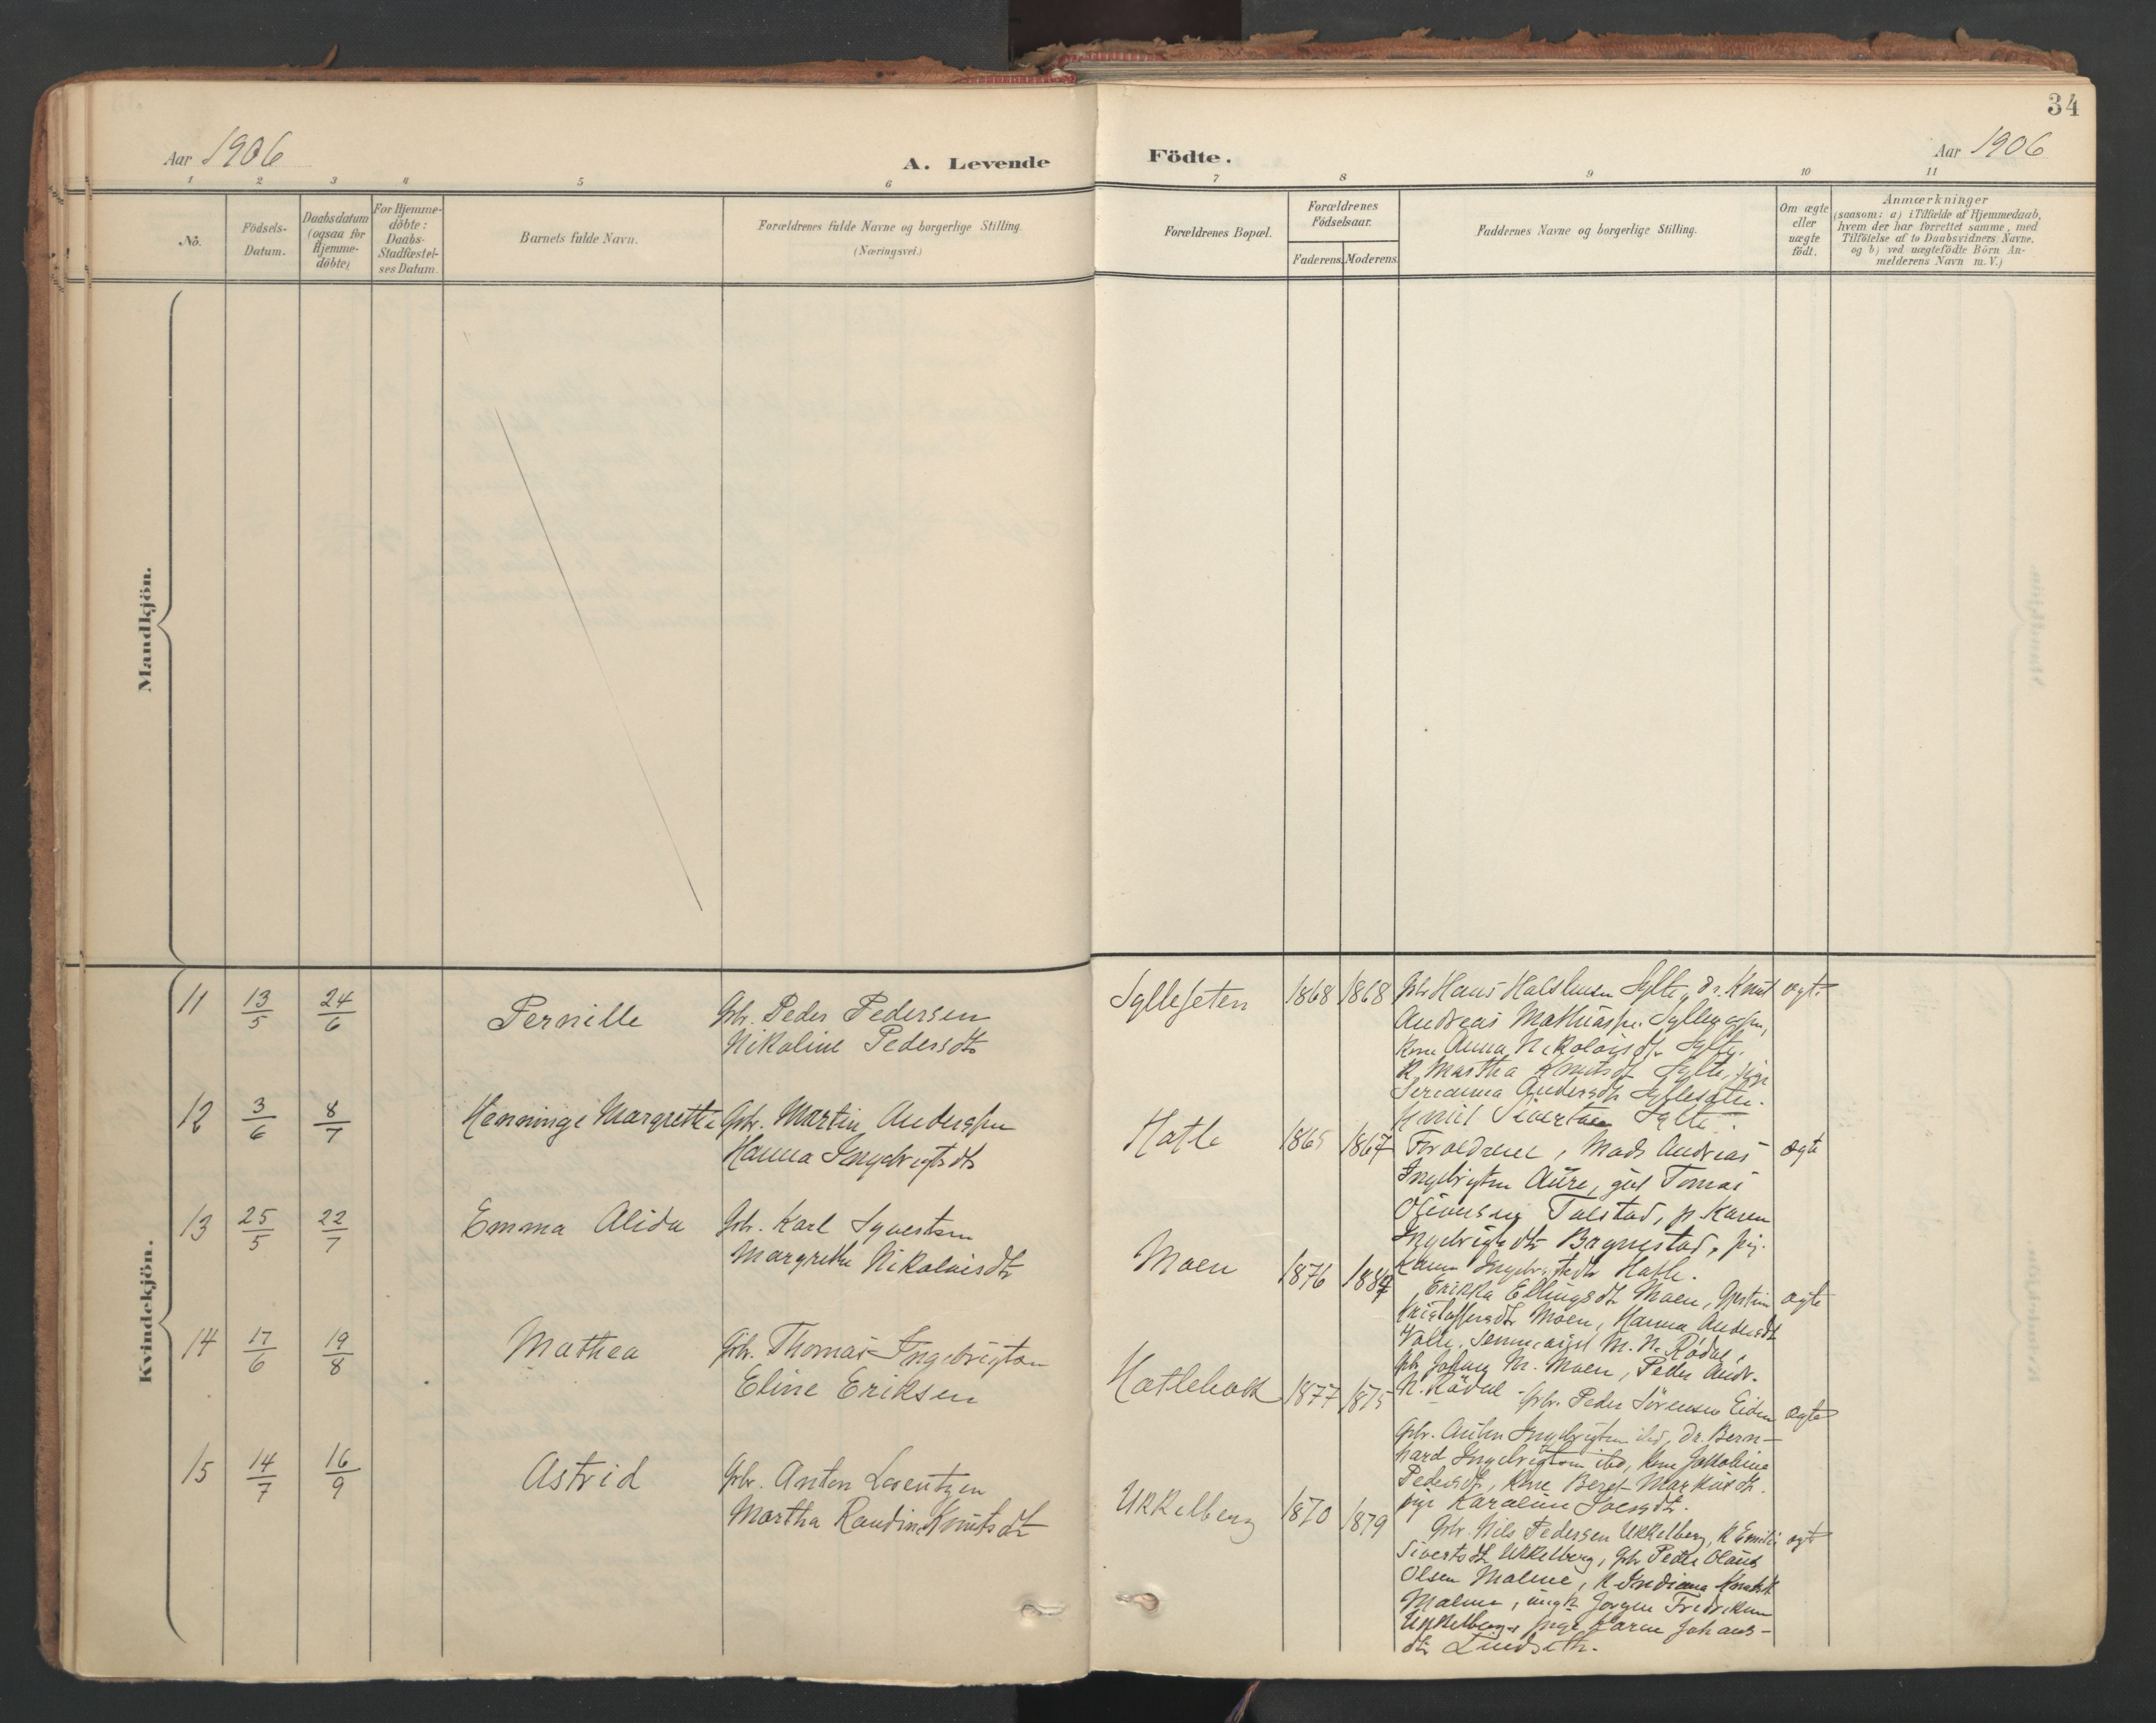 34
Aar 1906
A. Levende
Födte.
Aar 1906
1 2 3 4 5 6 7 8 9 10 11
No.
Födsels-
Datum.
Daabsdatum
(ogsaa for
Hjemme-
döbte)
For Hjemme-
döbte:
Daabs-
Stadfæstel-
ses Datum.
Barnets fulde Navn.
Forældrenes fulde Navne og borgerlige Stilling.
(Næringsvei.)
Forældrenes Bopæl.
Forældrenes
Födselsaar.
Faderens. Moderens.
Faddernes Navne og borgerlige Stilling.
Om ægte
eller
uægte
födt.
Anmærkninger
(saasom: a) i Tilfælde af Hjemmedaab,
hvem der har forrettet samme, med
Tilföielse af to Daabsvidners Navne,
og b) ved uægtefödte Börn An-
melderens Navn m. V.)
Mandkjön.
Kvindekjön.
11 13/5 24/6 Pernille Gbr. Peder Pedersen
Nikoline Pedersdtr
Sylleseten 1868 1868
Gbr Hans Sylte, dr. Knut
Andreas
Kone Anna Nikolaisdtr Sylte,
K. Martha Knutsdtr Sylte, pige
Andersdtr Syllesæten.
Sivertsen Sylte.
12 3/6 8/7 Henninge Margrethe Gbr. Martin Anderssen
Hanna Ingebrigtsdtr
Hatle 1865 1867 ægte
Forældrene, Mads Andreas
Ingebrigtsen Aure, Tomas
Talstad, p. Karen
Ingebrigtsdtr Brynestad, pig.
Ingebrigtsdtr Hatle.
13 25/5 22/7 Emma Alida Gbr. Karl Syvertsen
Margrethe Nikolaisdtr
Moen 1876 ægte
Erikka Ellingsdtr Moen,
Kristoffersdtr Moen, Hanna Andersdtr
M. N. Rödal,
Gbr Johan M. Moen, Peder Andr.
N. Rödal.
14 17/6 19/8 Mathea Gbr. Thomas Ingebrigtsen
Eline Eriksen
1877 1875 ægte
Gbr. Peder Sörensen Eiden
Gbr. Ingebrigtsen ibd, dr. Bern-
hard Ingebrigtsen ibd, Kone Jakobine
Pedersdtr, Kone Beret Markusdtr.
pige
15 14/7 16/9 Astrid Gbr. Anton Lorentzen
Martha Raudine Knutsdtr
Ukkelberg 1870 1879
Gbr. Nils Pedersen Ukkelberg, K Emilie
Sivertsdtr Ukkelberg, Gbr Peder Olaus
Olsen Malme, K. Indiana
Malme, ungk. Jörgen Fredriksen
Ukkelberg, pige Karen Johans-
dtr Lindseth.